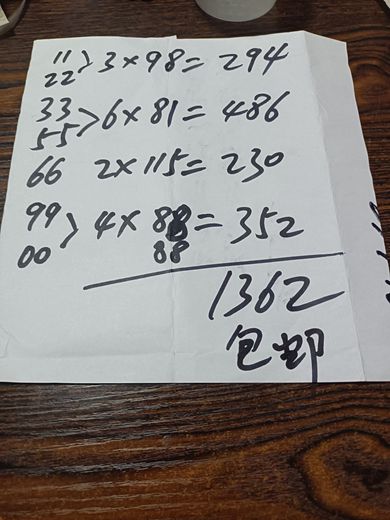 11
22 > 3×98=294
33
55 > 6×81=486
66 2×115=230
99
00 > 4×88=352
88
1362
包邮